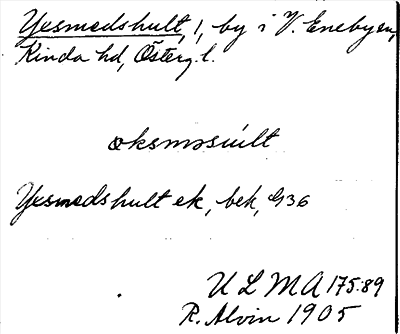 Yxsmedshult, 1, by i V. Eneby sn,
Kinda hd, Österg.l.
øksməsúlt
Yxsmedshult ek, bek, G36
ULMA 175:89
R. Alvin 1905